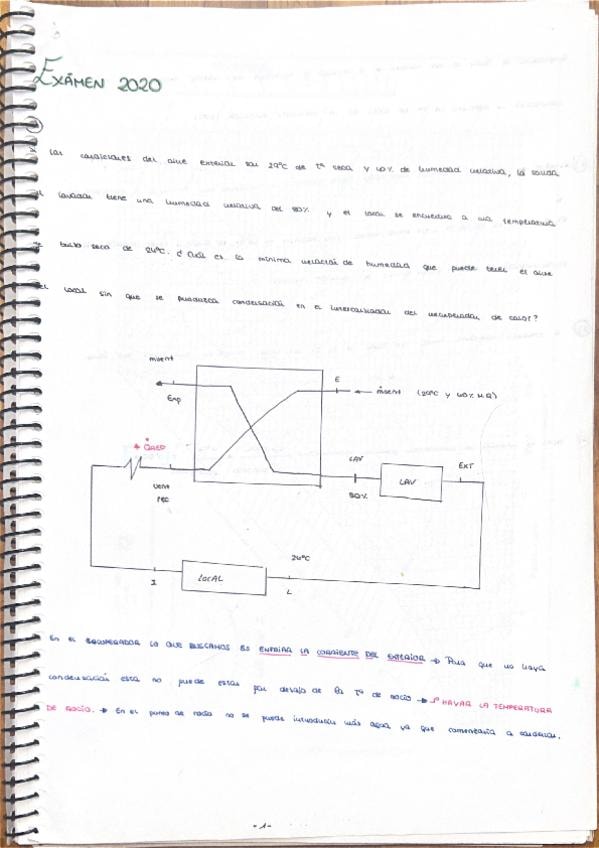 EXÁMEN 2020
Las condiciones del aire exterior son 29°C de Tª seca y 40% de humedad relativa, la salida
lavador tiene una humedad relativa del 80% y el local se encuentra a una temperatura
bulbo seco de 24°C. ¿Cuál es la mínima relación de humedad que puede tener el aire
del local sin que se produzca condensación en el intercambiador del recuperador de calor?
mvent
Exp
E
mvent (29°C y 40% H.R)
+ QRED
Vent
rec
LAV
80%
LAV
EXT
24°C
I
LOCAL
L
En el RECUPERADOR LO QUE BUSCAMOS ES ENFRIAR LA CORRIENTE DEL EXTERIOR → Para que no haya
condensación esta no puede estar por debajo de la Tª de rocío → 1º HAYAR LA TEMPERATURA
DE ROCÍO. → En el punto de rocío no se puede introducir más agua ya que comenzaría a condensar.
- 1 -